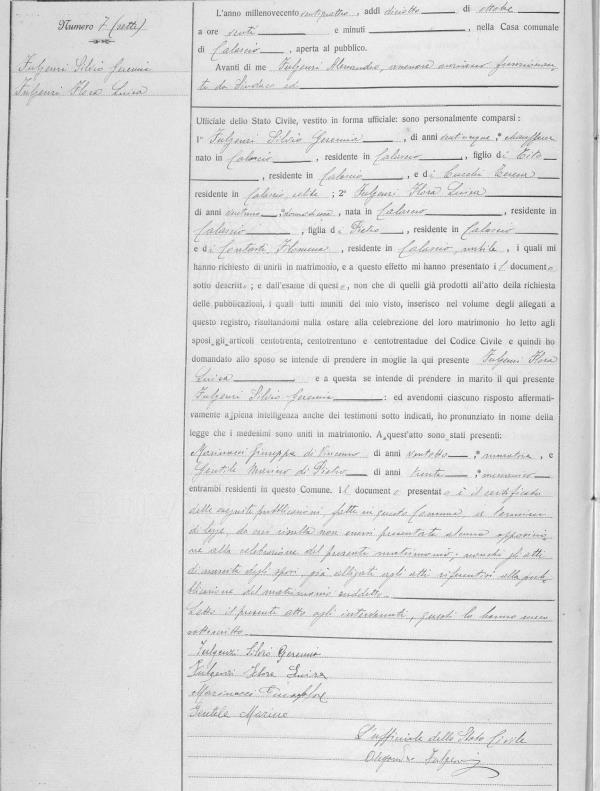 Numero 7 (sette)
Fulgenzi Silvio Geremia
Fulgenzi Flora Luisa
L'anno millenovecento ventiquattro, addì diciotto di ottobre
a ore venti e minuti, nella Casa comunale
di Calascio, aperta al pubblico.
Avanti di me Fulgenzi Alessandro, assessore anziano funzionan
te da Sindaco ed
Ufficiale dello Stato Civile, vestito in forma ufficiale: sono personalmente comparsi:
1° Fulgenzi Silvio Geremia, di anni venticinque, chauffeur
nato in Calascio, residente in Calascio, figlio di Tito
, residente in Calascio, e di
residente in Calascio, celibe; 2° Fulgenzi Flora Luisa
di anni ventuno, donna di casa, nata in Calascio, residente in
Calascio, figlia di Pietro, residente in Calascio
e di Filomena, residente in Calascio, nubile, i quali mi
hanno richiesto di unirli in matrimonio, e a questo effetto mi hanno presentato il documento
sotto descritto; e dall'esame di questo, non che di quelli già prodotti all'atto della richiesta
delle pubblicazioni, i quali tutti muniti del mio visto, inserisco nel volume degli allegati a
questo registro, risultandomi nulla ostare alla celebrazione del loro matrimonio ho letto agli
sposi gli articoli centotrenta, centotrentuno e centotrentadue del Codice Civile e quindi ho
domandato allo sposo se intende di prendere in moglie la qui presente Fulgenzi Flora
Luisa e a questa se intende di prendere in marito il qui presente
Fulgenzi Silvio Geremia: ed avendomi ciascuno risposto affermati-
vamente a piena intelligenza anche dei testimoni sotto indicati, ho pronunziato in nome della
legge che i medesimi sono uniti in matrimonio. A quest'atto sono stati presenti:
Marinacci Giuseppe di Vincenzo di anni ventotto, muratore, e
Gentile Marino di Pietro di anni trenta, meccanico
entrambi residenti in questo Comune. Il documento presentato è il certificato
delle eseguite pubblicazioni, fatte in questo Comune, a termini
di legge, da cui risulta non essersi presentata alcuna opposizio
ne alla celebrazione del presente matrimonio; nonché gli atti
di nascita degli sposi, già allegati agli atti riferentisi alla pub
blicazione del matrimonio suddetto.
Letto il presente atto agli intervenuti, questi lo hanno meco
sottoscritto
Fulgenzi Silvio Geremia
Fulgenzi Flora Luisa
Marinacci Giuseppe
Gentile Marino
L'ufficiale dello Stato Civile
Fulgenzi